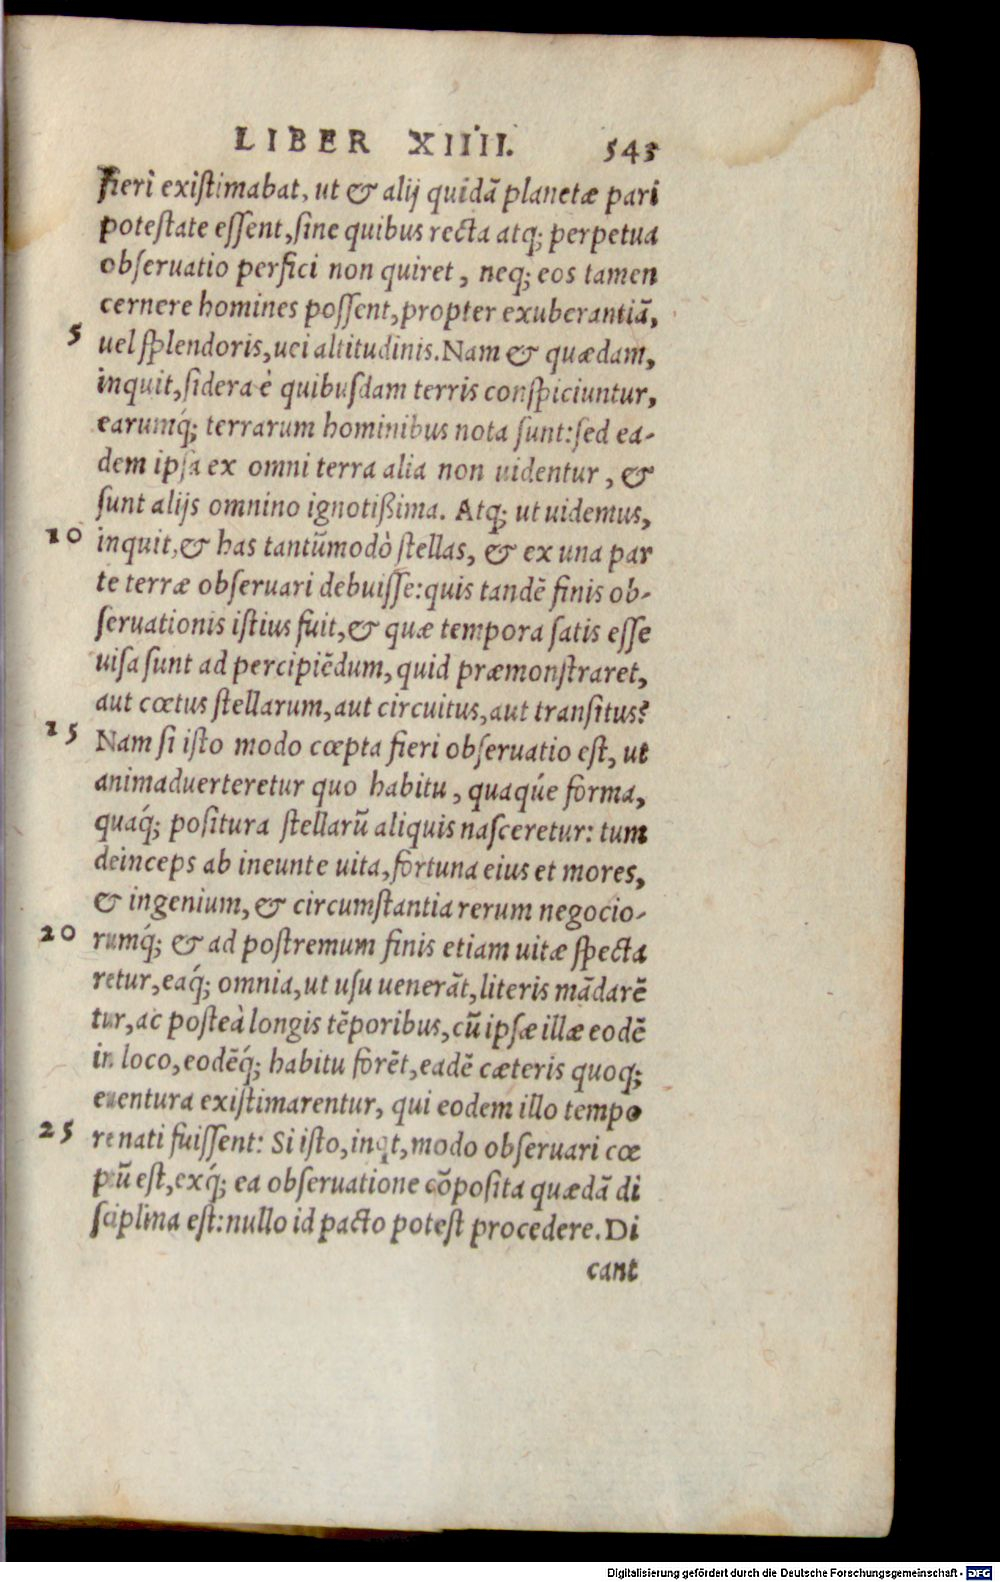 LIBER XIIII. 543
fieri existimabat, ut & alij quidã planetæ pari
potestate essent, sine quibus recta atq; perpetua
obseruatio perfici non quiret, neq; eos tamen
cernere homines possent, propter exuberantiã,
5 uel splendoris, uei altitudinis. Nam & quædam,
inquit, sidera è quibusdam terris conspiciuntur,
earumq́; terrarum hominibus nota sunt: sed ea-
dem ipsa ex omni terra alia non uidentur, &
sunt alijs omnino ignotißima. Atq; ut uidemus,
10 inquit, & has tantũmodò stellas, & ex una par
te terræ obseruari debuisse: quis tandẽ finis ob-
seruationis istius fuit, & quæ tempora satis esse
uisa sunt ad percipiẽdum, quid præmonstraret,
aut cœtus stellarum, aut circuitus, aut transitus?
15 Nam si isto modo cœpta fieri obseruatio est, ut
animaduerteretur quo habitu, quaqúe forma,
quaq́; positura stellarũ aliquis nasceretur: tum
deinceps ab ineunte uita, fortuna eius et mores,
& ingenium, & circumstantia rerum negocio-
20 rumq́; & ad postremum finis etiam uitæ specta
retur, eaq́; omnia, ut usu uenerãt, literis mãdarẽ
tur, ac posteà longis tẽporibus, cũ ipsæ illæ eodẽ
in loco, eodẽq́; habitu forẽt, eadẽ cæteris quoq;
euentura existimarentur, qui eodem illo tempo
25 re nati fuissent: Si isto, inqt, modo obseruari cœ
ptũ est, exq́; ea obseruatione cõposita quædã di
sciplina est: nullo id pacto potest procedere. Di
cant
Digitalisierung gefördert durch die Deutsche Forschungsgemeinschaft - DFG